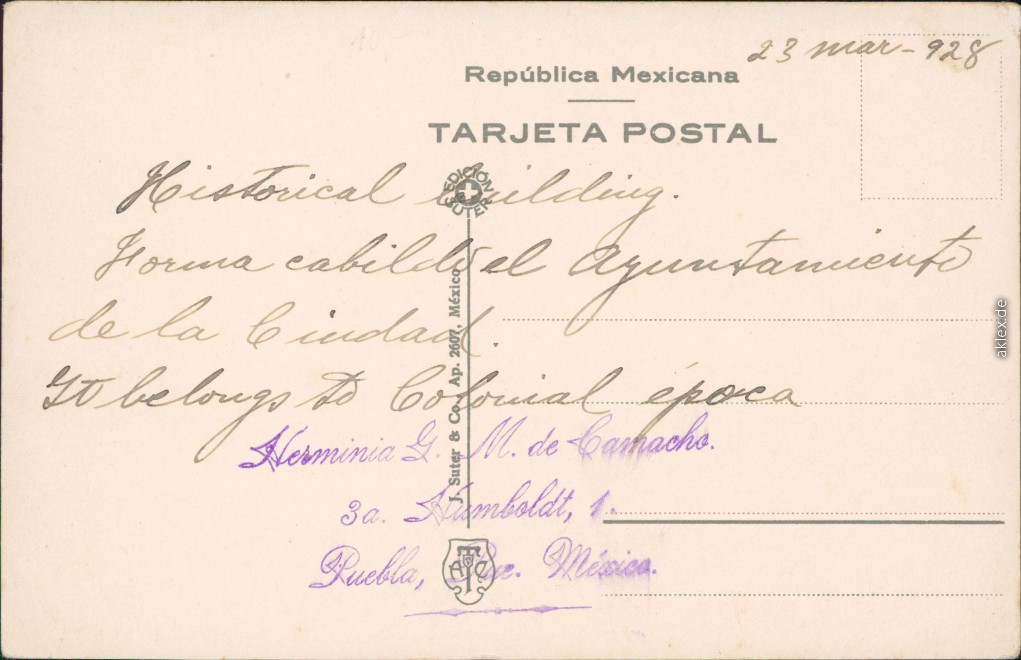 23 mar - 928
República Mexicana
TARJETA POSTAL
EDICIÓN SUTER
Historical building.
Forma cabildo el Ayuntamiento
de la Ciudad.
It belongs to Colonial época
J. Suter & Co., Ap. 2607, México
Herminia G. M. de Camacho.
3a. Humboldt, 1.
Puebla, Pue. México.
aklex.de